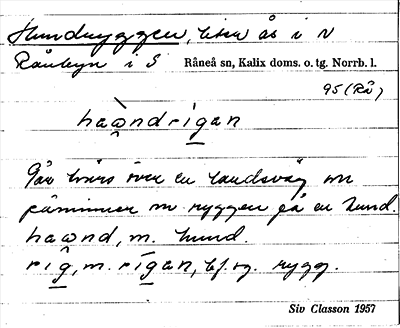 Hundryggen, liten ås i N
Råneby i S Råneå sn, Kalix doms. o. tg. Norrb. l.
95 (Rå)
hàω̂ndrígan
Går tvärs över en landsväg
påminner om ryggen på en hund.
haωnd, m. hund.
riĝ, m. rígan, bf. sg. rygg.
Siv Classon 1957